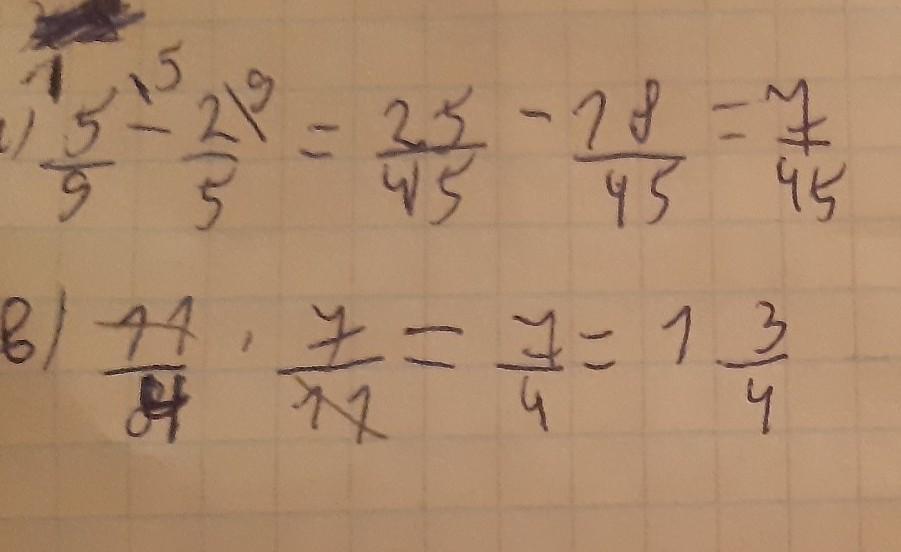 1
а) 5/9 \5 − 2/5 \9 = 25/45 − 18/45 = 7/45
в) 11/4 · 7/11 = 7/4 = 1 3/4